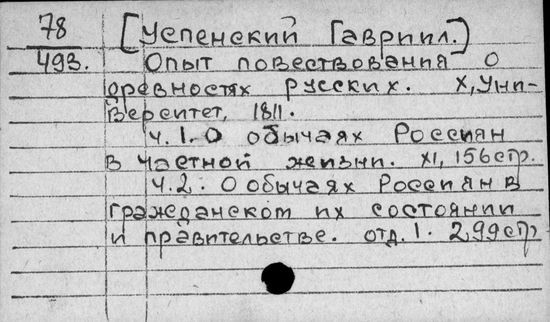 78
493.
[Успенский Гавриил.)
Опыт повествования о
древностях русских. Х, Уни-
верситет, 1811.
ч. 1. О обычаях Россиян
в частной жизни. XI, 156 стр.
ч. 2. О обычаях Россиян в
гражданском их состоянии
и правительстве. отд. 1. 299 стр